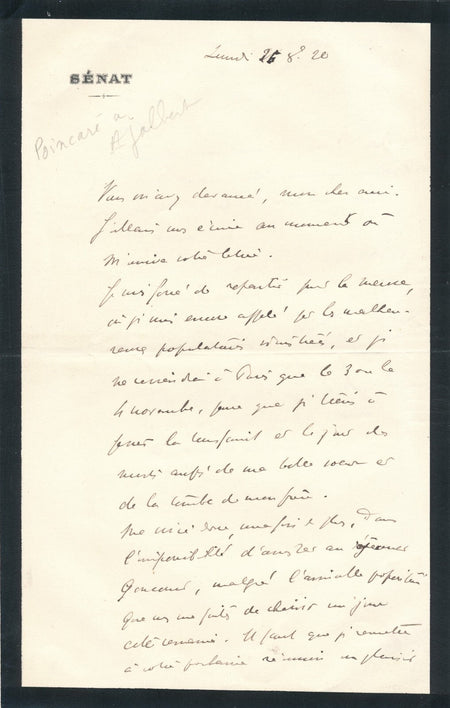 Lundi 26 8e. 20
SÉNAT
Poincaré à
Ajalbert
Vous m'avez devancé, mon cher ami.
J'allais vous écrire au moment où
m'arrive votre lettre.
Je suis forcé de repartir pour la Meuse,
où je suis encore appelé par les malheu-
reuses populations sinistrées, et je
ne reviendrai à Paris que le 3 ou le
4 novembre, parce que je tiens à
passer la Toussaint et le jour des
morts auprès de ma belle soeur et
de la tombe de mon frère.
Me voici donc, une fois de plus, dans
l'impossibilité d'assister au déjeuner
Goncourt, malgré l'amicale proposition
que vous me faites de choisir un jour
cette semaine. Il faut que je remette
à votre prochaine réunion un plaisir